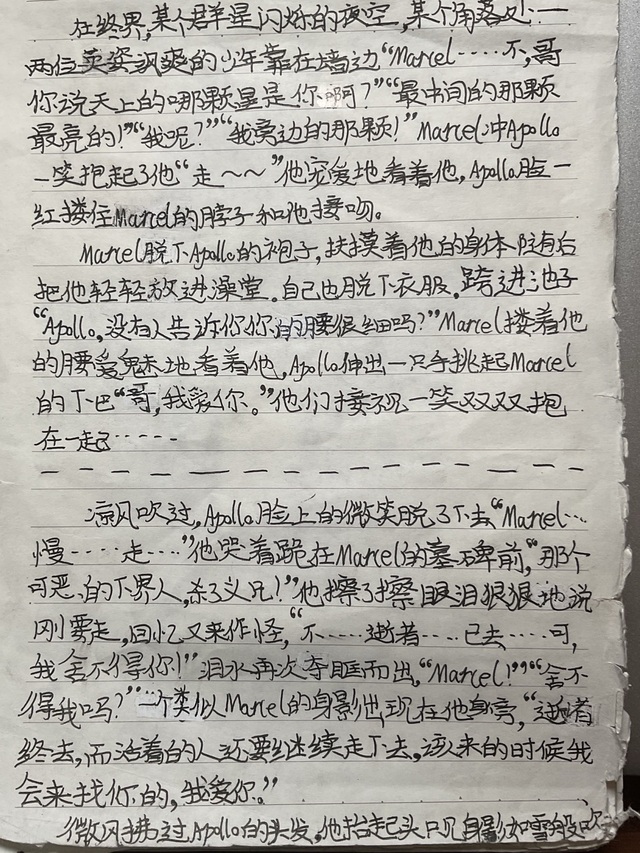 在终界,某个群星闪烁的夜空,某个角落处一
两位英姿飒爽的少年靠在墙边“Marcel····不,哥
你说天上的哪颗星是你啊?”“最中间的那颗
最亮的!”“我呢?”“我旁边的那颗!”Marcel冲Apollo
一笑抱起了他“走~~”他宠爱地看着他,Apollo脸一
红搂住Marcel的脖子和他接吻。
Marcel脱下Apollo的袍子,抚摸着他的身体随后
把他轻轻放进澡堂。自己也脱下衣服。跨进池子
“Apollo,没有人告诉你你的腰很细吗?”Marcel搂着他
的腰魅地看着他,Apollo伸出一只手挑起Marcel
的下巴“哥,我爱你。”他们接视一笑双双抱
在一起·····
凉风吹过,Apollo脸上的微笑脱了下去“Marcel···
慢····走····”他哭着跪在Marcel的墓碑前,“那个
可恶的下界人,杀了义兄!”他擦了擦眼泪狠狠地说
刚要走,回忆又来作怪,“不····逝者····已去····可,
我舍不得你!”泪水再次夺眶而出,“Marcel!”“舍不
得我吗?”一个类似Marcel的身影出现在他身旁,“逝者
终去,而活着的人还要继续走下去,该来的时候我
会来找你的,我爱你。”
微风拂过Apollo的头发,他抬起头只见身影如雪般吹